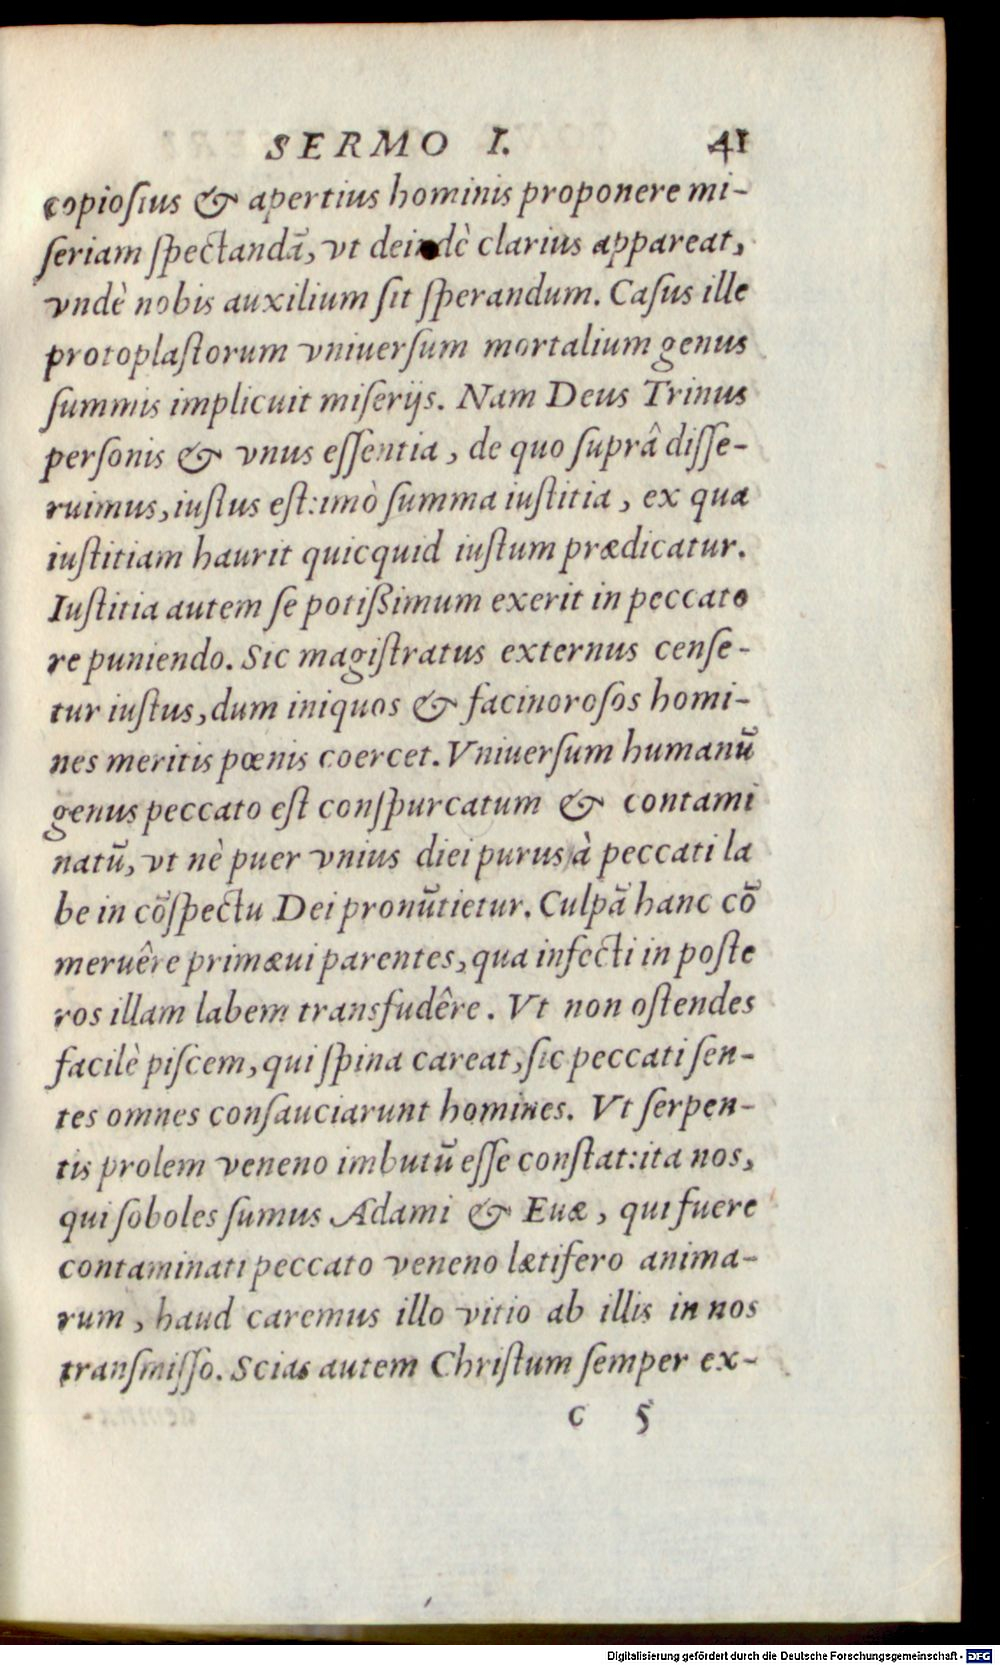 SERMO I. 41
copioſius & apertius hominis proponere mi-
ſeriam ſpectandã, vt deindè clarius appareat,
vndè nobis auxilium ſit ſperandum. Caſus ille
protoplaſtorum vniuerſum mortalium genus
ſummis implicuit miſerijs. Nam Deus Trinus
perſonis & vnus eſſentia, de quo ſuprâ diſſe-
ruimus, iuſtus eſt: imò ſumma iuſtitia, ex qua
iuſtitiam haurit quicquid iuſtum prædicatur.
Iuſtitia autem ſe potißimum exerit in peccato
re puniendo. Sic magiſtratus externus cenſe-
tur iuſtus, dum iniquos & facinoroſos homi-
nes meritis pœnis coercet. Vniuerſum humanũ
genus peccato eſt conſpurcatum & contami
natũ, vt nè puer vnius diei purus à peccati la
be in cõſpectu Dei pronũtietur. Culpã hanc cõ
meruêre primæui parentes, qua infecti in poſte
ros illam labem transfudêre. Vt non oſtendes
facilè piſcem, qui ſpina careat, ſic peccati ſen-
tes omnes conſauciarunt homines. Vt ſerpen-
tis prolem veneno imbutũ eſſe conſtat: ita nos,
qui ſoboles ſumus Adami & Euæ, qui fuere
contaminati peccato veneno lætifero anima-
rum, haud caremus illo vitio ab illis in nos
tranſmiſſo. Scias autem Chriſtum ſemper ex-
c 5
Digitalisierung gefördert durch die Deutsche Forschungsgemeinschaft - DFG